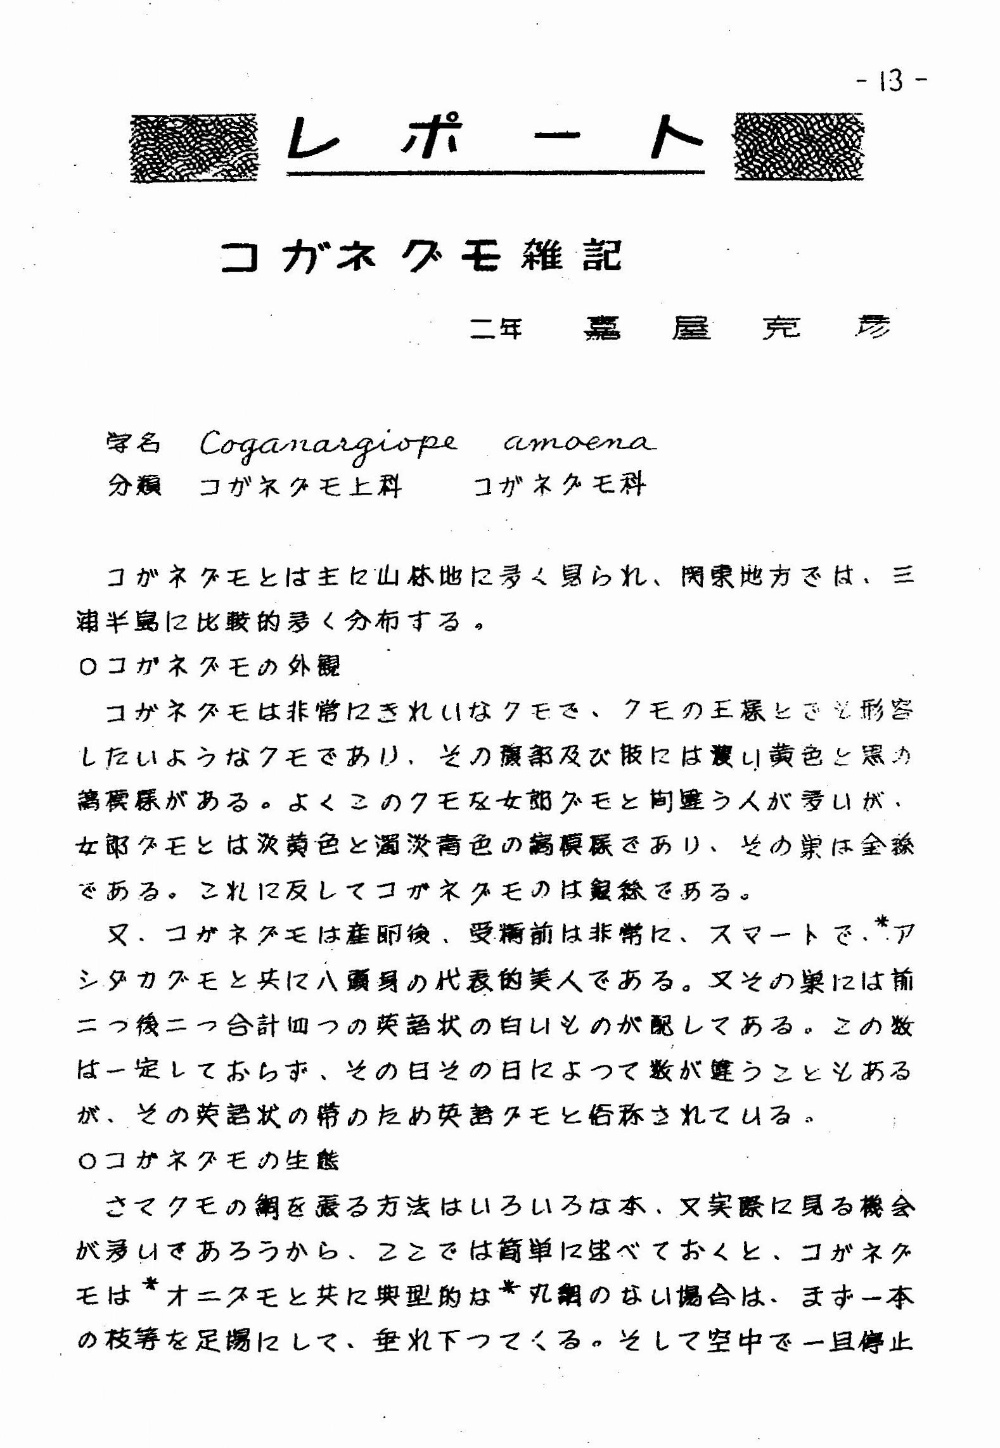 - 13 -
レポート
コガネグモ雑記
二年 嘉屋克彦
学名 Coganargiope amoena
分類 コガネグモ上科 コガネグモ科
コガネグモとは主に山林地に多く見られ、関東地方では、三
浦半島に比較的多く分布する。
○コガネグモの外観
コガネグモは非常にきれいなクモで、クモの王様とでも形容
したいようなクモであり、その腹部及び肢には濃い黄色と黒の
縞模様がある。よくこのクモを女郎グモと間違う人が多いが、
女郎グモとは淡黄色と濁淡青色の縞模様であり、その巣は金絲
である。これに反してコガネグモのは銀絲である。
又、コガネグモは産卵後、受精前は非常に、スマートで、*ア
シダカグモと共に八頭身の代表的美人である。又その巣には前
二つ後二つ合計四つの英語状の白いものが配してある。この数
は一定しておらず、その日その日によって数が違うこともある
が、その英語状の帯のため英語グモと俗称されている。
○コガネグモの生態
さてクモの網を張る方法はいろいろな本、又実際に見る機会
が多いであろうから、ここでは簡単に述べておくと、コガネグ
モは*オニグモと共に典型的な*丸網のない場合は、まず一本
の枝等を足場にして、垂れ下ってくる。そして空中で一旦停止